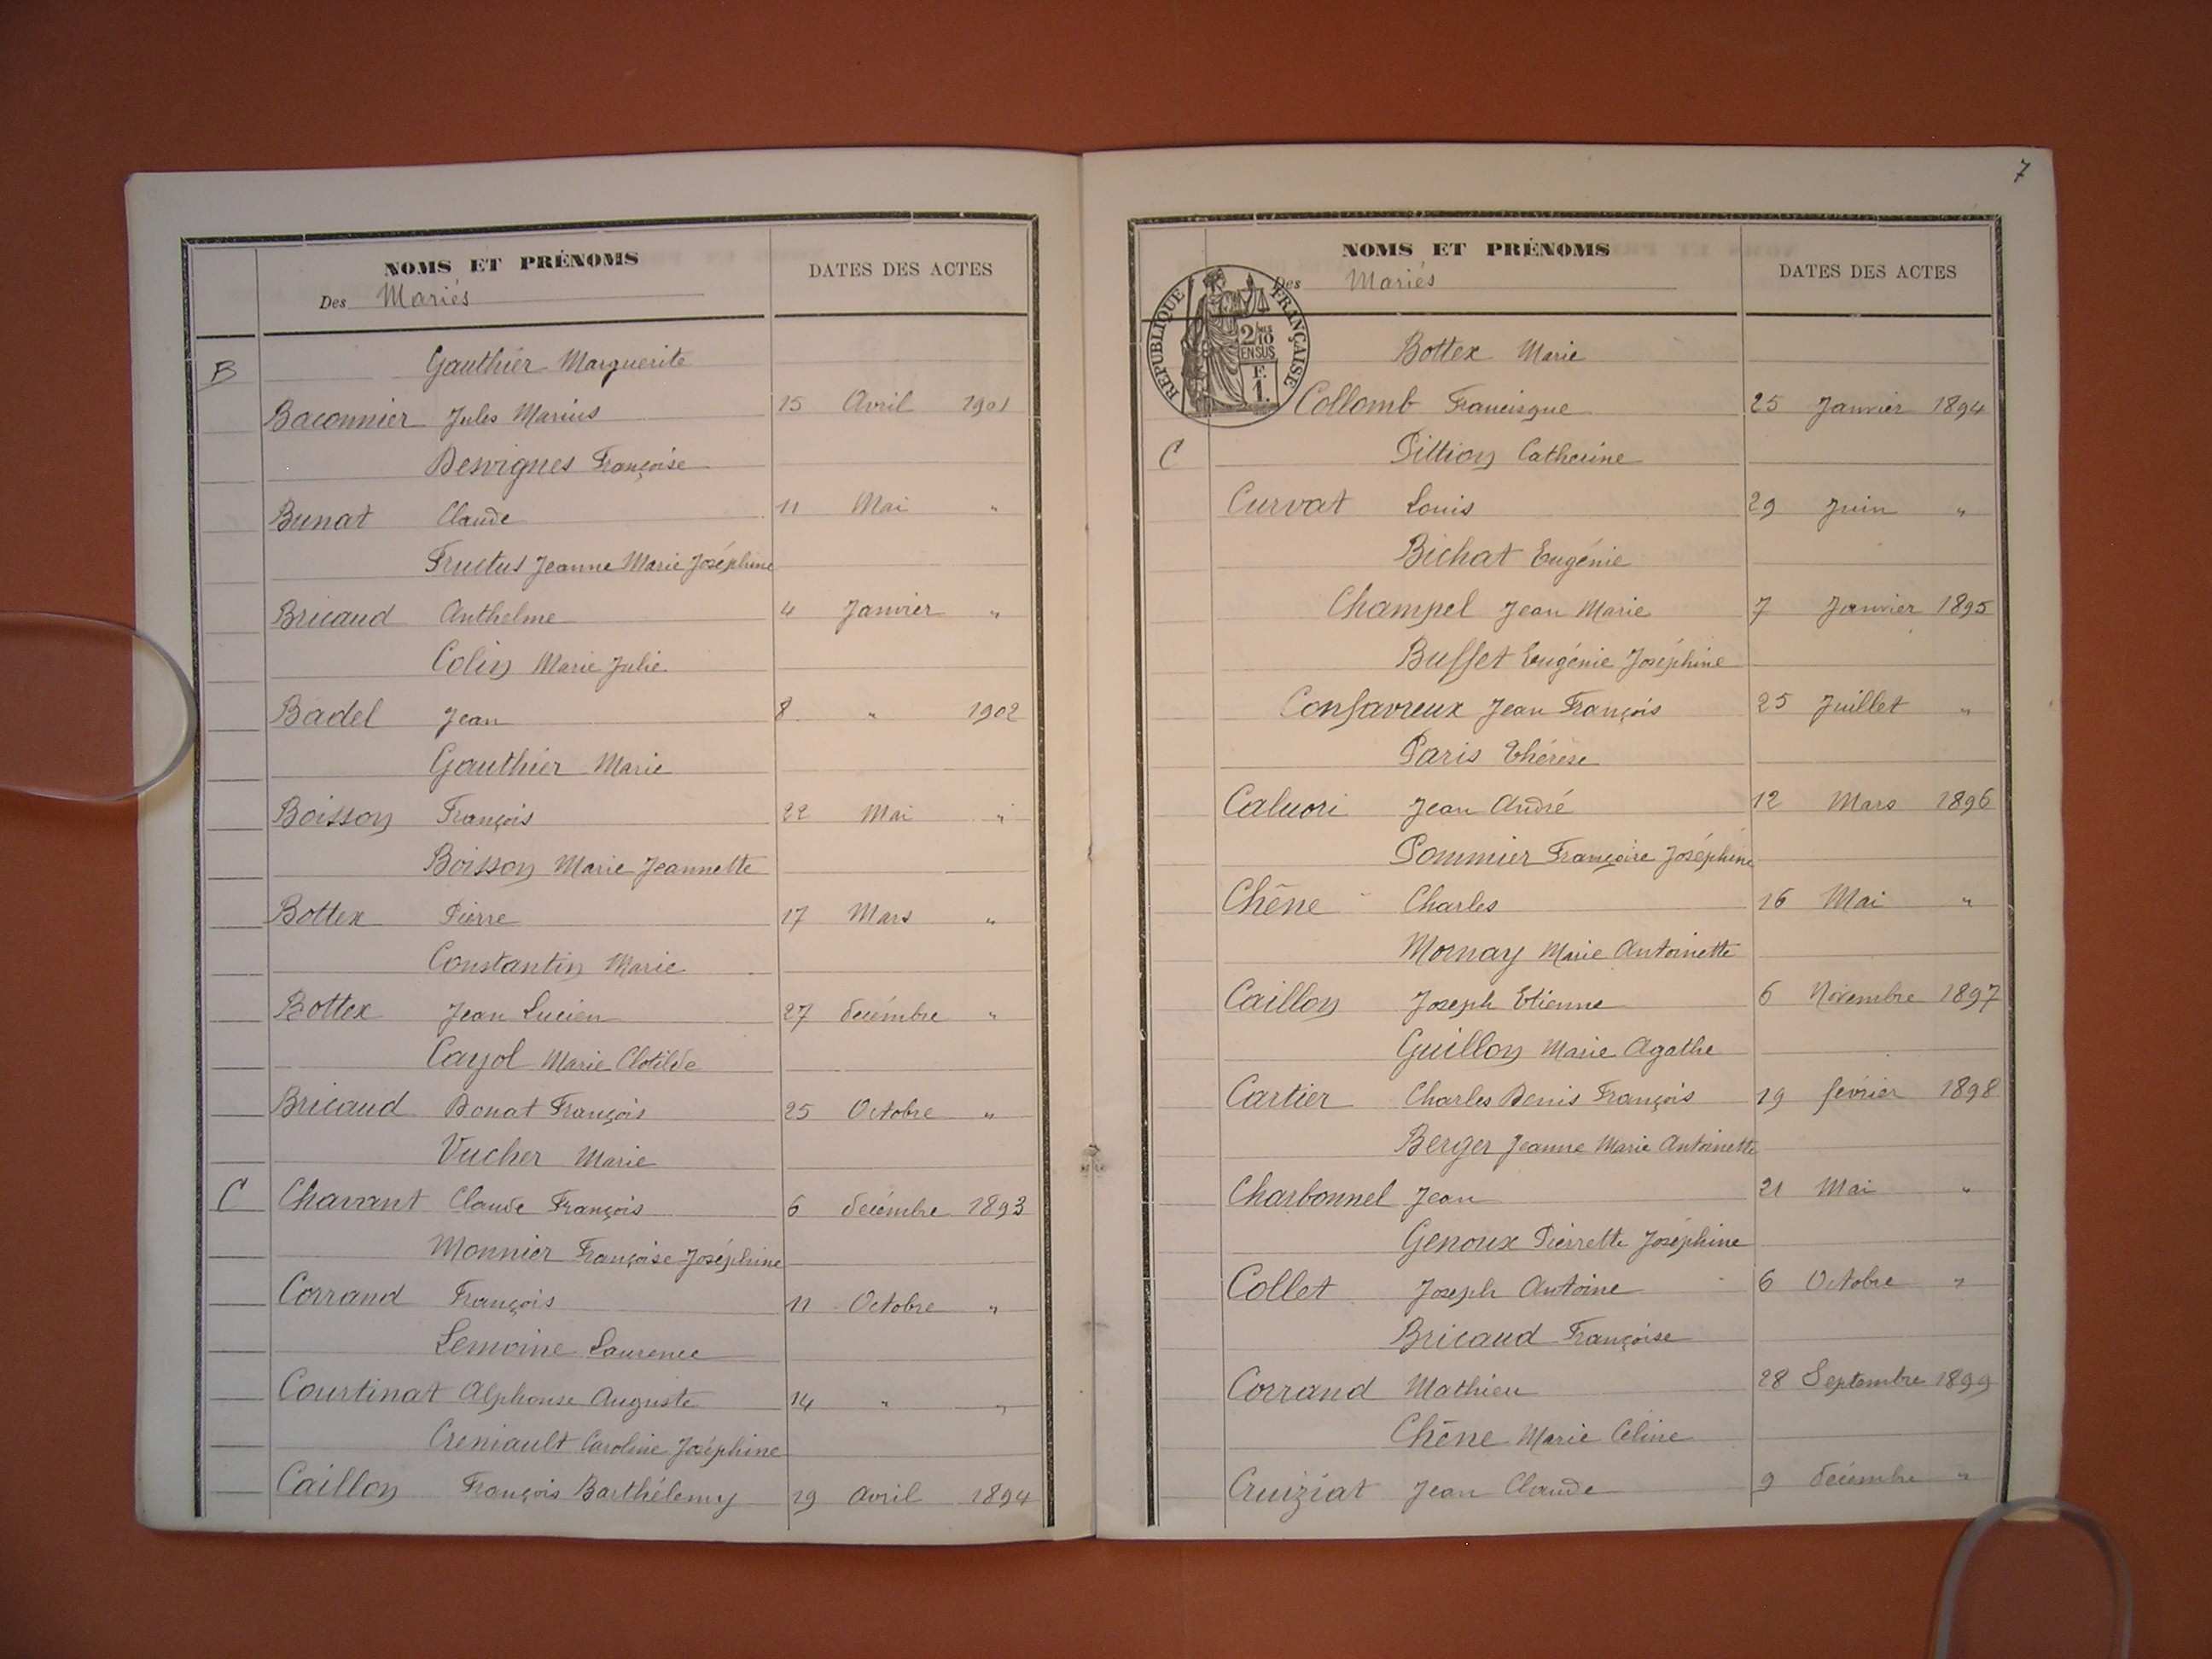 NOMS ET PRÉNOMS
DATES DES ACTES
Des Mariés
B Gauthier Marguerite
Baconnier Jules Marius 15 Avril 1901
Desvignes Françoise
Bunat Claude 11 Mai "
Fructus Jeanne Marie Joséphine
Bricaud Anthelme 4 Janvier "
Colin Marie Julie
Badel Jean 8 " 1902
Gauthier Marie
Boisson François 22 Mai "
Boisson Marie Jeannette
Bottex Pierre 17 Mars "
Constantin Marie
Bottex Jean Lucien 27 décembre "
Cayol Marie Clotilde
Bricaud Donat François 25 Octobre "
Vucher Marie
C Chavant Claude François 6 décembre 1893
Monnier Françoise Joséphine
Corrand François 11 Octobre "
Lemoine Laurence
Courtinat Alphonse Auguste 14 " "
Creniault Caroline Joséphine
Caillon François Barthélemy 29 Avril 1894
7
NOMS ET PRÉNOMS
DATES DES ACTES
Des Mariés
RÉPUBLIQUE FRANÇAISE
2/10
EN SUS
F.
1.
Bottex Marie
Collomb Francisque 25 Janvier 1894
C Pittion Catherine
Curvat Louis 29 Juin "
Bichat Eugénie
Champel Jean Marie 7 Janvier 1895
Buffet Eugénie Joséphine
Confavreux Jean François 25 Juillet "
Paris Thérèse
Caluori Jean André 12 Mars 1896
Pommier Françoise Joséphine
Chêne Charles 16 Mai "
Mornay Marie Antoinette
Caillon Joseph Etienne 6 Novembre 1897
Guillon Marie Agathe
Cartier Charles Denis François 19 février 1898
Berger Jeanne Marie Antoinette
Charbonnel Jean 21 Mai "
Genoux Pierrette Joséphine
Collet Joseph Antoine 6 Octobre "
Bricaud Françoise
Corrand Mathieu 28 Septembre 1899
Chêne Marie Céline
Cruiziat Jean Claude 9 décembre "